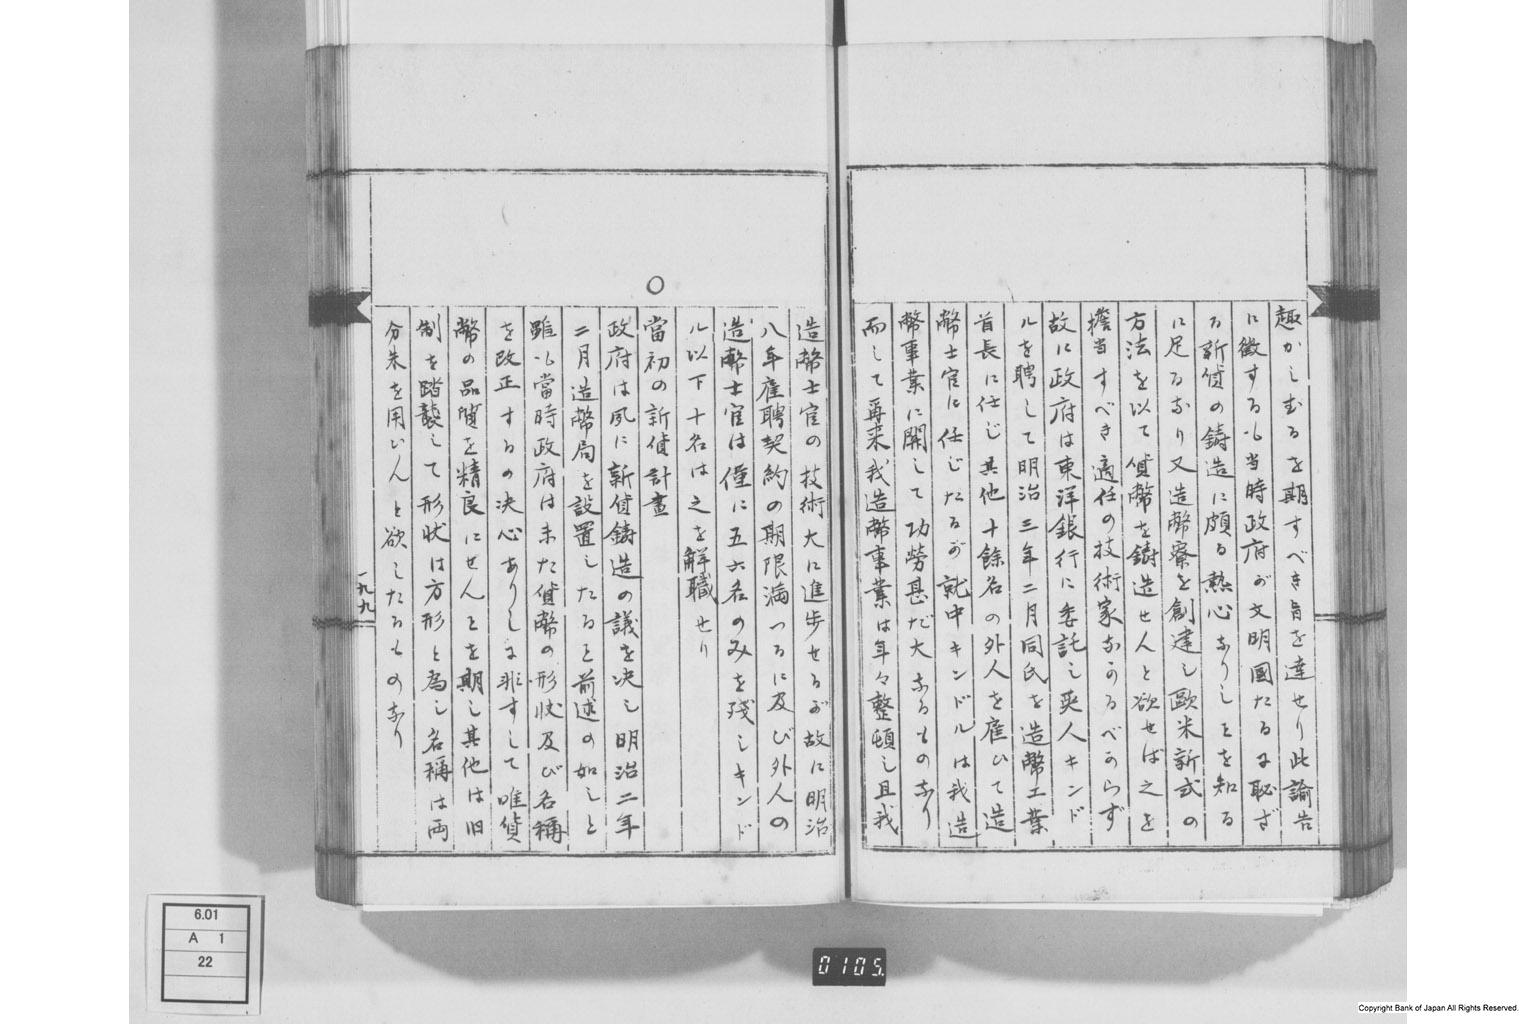 趣かしむるを期すべき旨を達せり此諭告
に徴するも当時政府が文明国たるに恥ざ
る新貨の鋳造に頗る熱心なりしことを知る
に足るなり又造幣寮を創建し欧米新式の
方法を以て貨幣を鋳造せんと欲せば之を
擔当すべき適任の技術家なかるべからず
故に政府は東洋銀行に委託し英人キンド
ルを聘して明治三年二月同氏を造幣工業
首長に任じ其他十餘名の外人を雇ひて造
幣士官に任じたるが就中キンドルは我造
幣事業に関して功勞甚だ大なるものなり
而して爾来我造幣事業は年々整頓し且我
造幣士官の技術大に進歩せるが故に明治
八年雇聘契約の期限満つるに及び外人の
造幣士官は僅に五六名のみを残しキンド
ル以下十名は之を解職せり
○
當初の新貨計畫
政府は夙に新貨鋳造の議を決し明治二年
二月造幣局を設置したること前述の如しと
雖も當時政府は未た貨幣の形状及び名稱
を改正するの決心ありしに非すして唯貨
幣の品質を精良にせんことを期し其他は旧
制を踏襲して形状は方形と為し名稱は両
分朱を用いんと欲したるものなり
一九九
6.01
A 1
22
0105.
Copyright Bank of Japan All Rights Reserved.